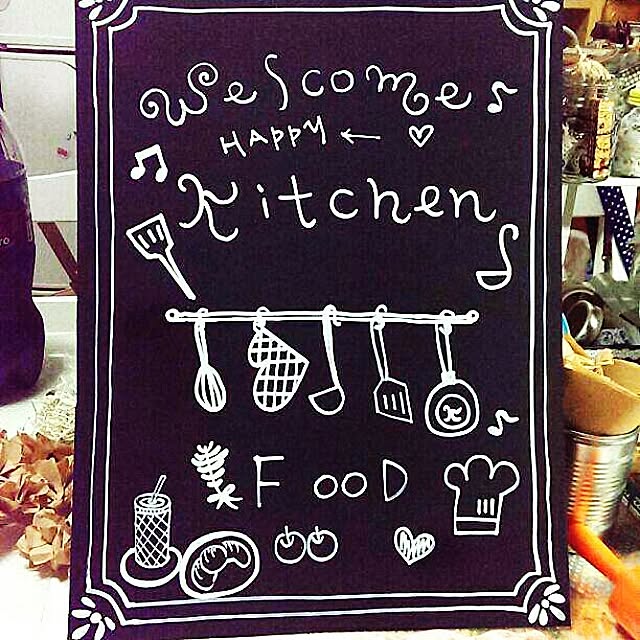 Welcome
HAPPY ←
Kitchen
FOOD